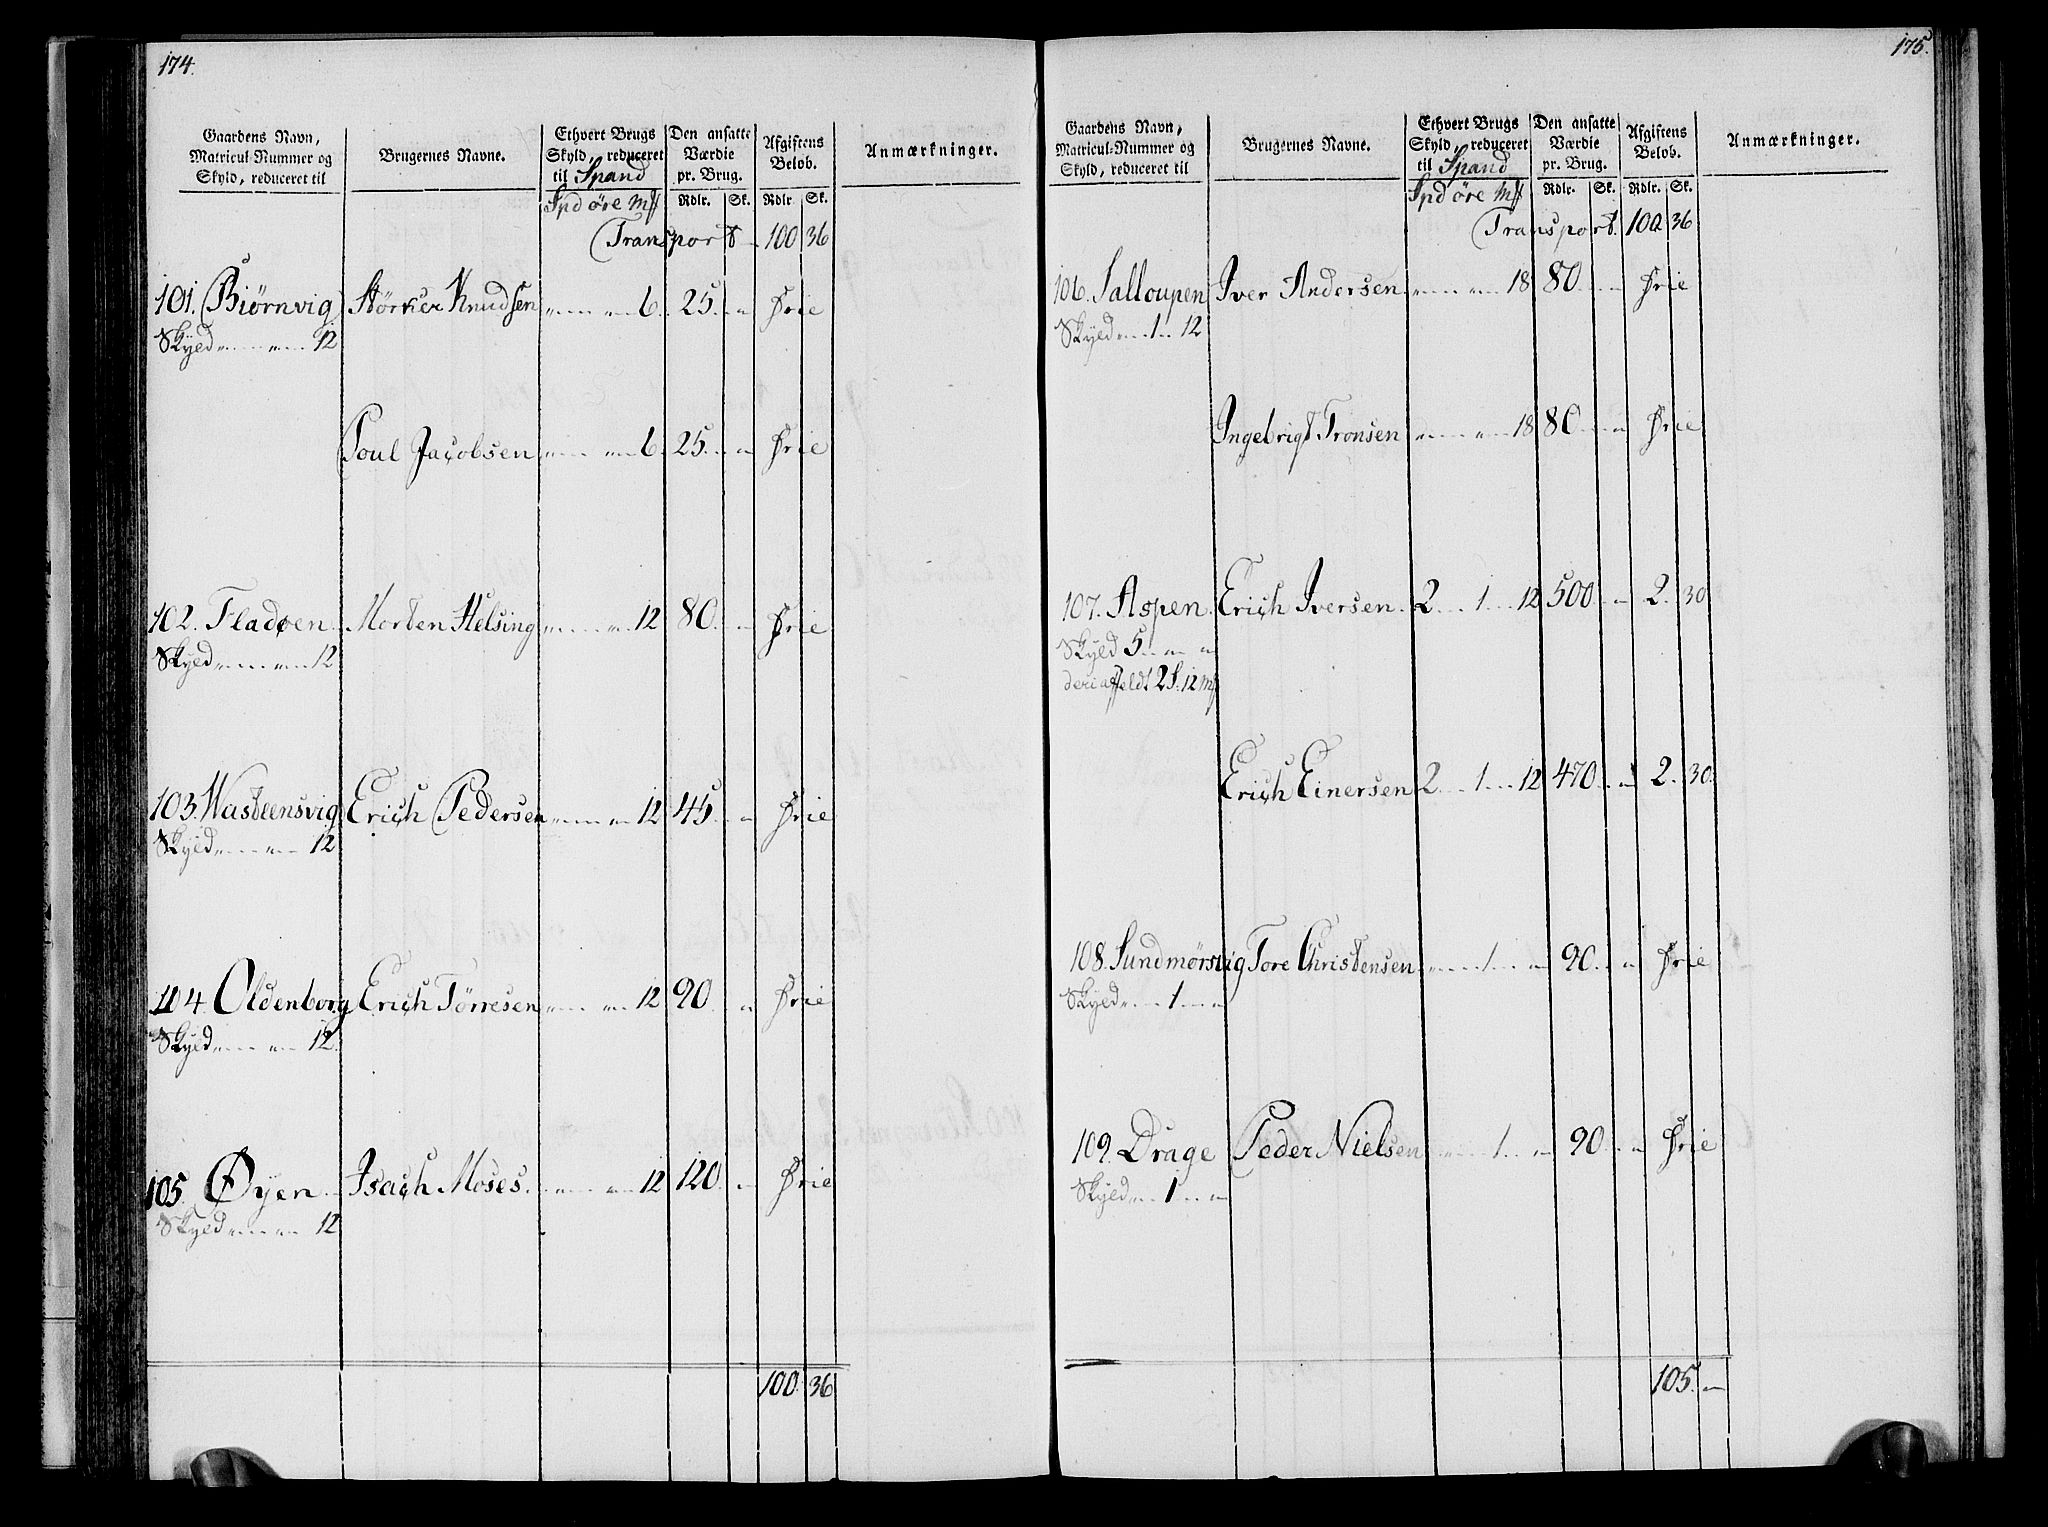 174.
Gaardens Navn, Matricul-Nummer og Skyld, reduceret til | Brugernes Navne. | Ethvert Brugs Skyld, reduceret til Spand | Den ansatte Værdie pr. Brug. | Afgiftens Beløb. | Anmærkninger.
Spd øre Mk | Rdlr. | Sk. | Rdlr. | Sk.
Transport 100 36
101. Biørnvig Størker Knudsen 6. 25. Frie
Skyld 12
Poul Jacobsen 6. 25. Frie
102. Fladøen Morten Helsing 12 80. Frie
Skyld 12
103. Hasteensvig Erich Pedersen 12 45. Frie
Skyld 12
104. Oldenborg Erich Tørresen 12 90 Frie
Skyld 12.
105. Øyen Isach Moses. 12 120. Frie
Skyld 12
100. 36
175.
Gaardens Navn, Matricul-Nummer og Skyld, reduceret til | Brugernes Navne. | Ethvert Brugs Skyld, reduceret til Spand | Den ansatte Værdie pr. Brug. | Afgiftens Beløb. | Anmærkninger.
Spd øre Mk | Rdlr. | Sk. | Rdlr. | Sk.
Transport. 100 36
106. Salloupen Iver Andersen 18 80. Frie
Skyld 1 12
Ingebrigt Tronsen 18 80. Frie
107. Aspen. Erich Iversen. 2 1 12 500. 2. 30
Skyld 5
deri affeldt 2 S. 12 Mk
Erich Einersen 2 1 12 470. 2. 30.
108. Sundmørsvig Tore Christensen 1 90. Frie
Skyld 1
109. Drage Peder Nielsen 1 90. Frie
Skyld 1
105.